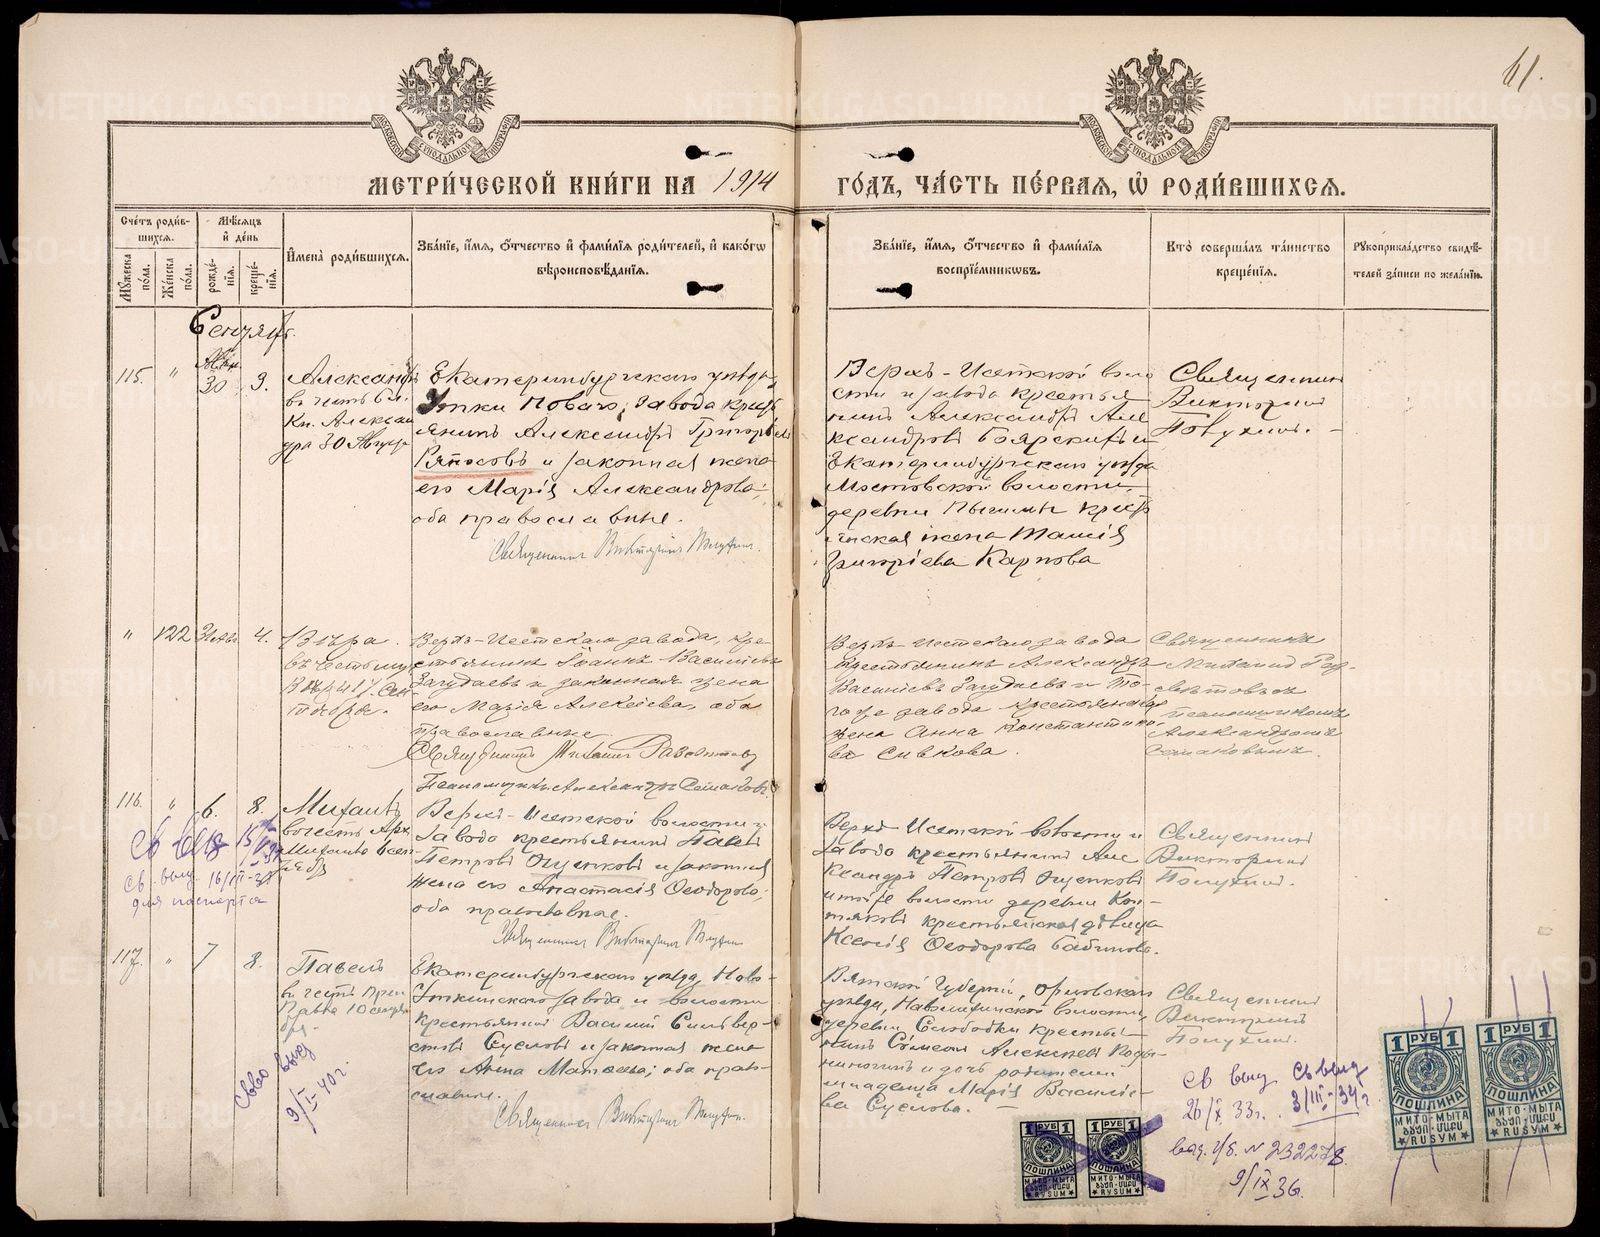 61.
МЕТРИ́ЧЕСКОЙ КНИ́ГИ НА 1914
ГО́ДЪ, ЧА́СТЬ ПЕ́РВАЯ, Ѡ РОДИ́ВШИХСЯ.
Сче́тъ роди́в-
шихся.
Мꙋжеска
по́ла.
Же́нска
по́ла.
Мѣ́сяцъ
и҆ де́нь
рожде́-
нїя.
креще́-
нїя.
И҆мена̀ роди́вшихся.
Зва́нїе, и҆́мя, ѻ҆́тчество и҆ фами́лїя роди́телей, и҆ како́гѡ
вѣроисповѣ́данїя.
Зва́нїе, и҆́мя, ѻ҆́тчество и҆ фами́лїя
воспрїе́мникѡвъ.
Кто̀ соверша́лъ та́инство
креще́нїя.
Рꙋкоприкла́дство свидѣ́-
телей за́писи по жела́нїю.
Сентябрь
115.
"
Авг.
30
3.
Александръ
въ честь бл.
Кн. Алексан
дра 30 Августа
Екатеринбургскаго уѣзда,
Утки Новаго, завода кресть
янинъ Александръ Григорьевъ
Ряпосовъ и законная жена
его Марія Александрова;
оба православные.
Священникъ Викторинъ
Верхъ-Исетской воло
сти и завода крестья
нинъ Александръ Але
ксандровъ Боярскихъ и
Екатеринбургскаго уѣзда
Мостовской волости,
деревни Пышмы кресть
янская жена
Григоріева Карпова
Священникъ
Викторинъ
"
122
4.
Вѣра.
въ честь му.
Вѣры 17. Сен
тября.
Верхъ-Исетскаго завода, кре-
стьянинъ Іоаннъ Васильевъ
Загудаевъ и законная жена
его Марія Алексѣева, оба
православные
Священникъ Михаилъ
Псаломщикъ Александръ
Верхъ-Исетскаго завода
крестьянинъ Александръ
Васильевъ Загудаевъ и То-
гоже завода крестьянская
жена Анна Константино-
ва Сивкова.
Священникъ
Михаилъ
псаломщикомъ
Александромъ
116.
"
6.
8.
Михаилъ
въ честь Арх.
Михаила 6 сен
тября
Верхъ-Исетской волости и
завода крестьянинъ Павелъ
Петровъ Ощепковъ и законная
жена его Анастасія Ѳеодорова;
оба православные.
Священникъ Викторинъ
Верхъ-Исетской волости и
завода крестьянинъ Але
ксандръ Петровъ Ощепковъ
и волости деревни Кон-
тяковъ крестьянская дѣвица
Ксенія Ѳеодорова Бабинова.
Священникъ
Викторинъ
Св. выд. 16/III-37
для паспорта
117.
"
7
8.
Павелъ
въ честь Преп
Павла 10 сентя
бря.
Екатеринбургскаго уѣзда, Ново-
Уткинскаго завода и волости
крестьянинъ Василій Сильвер-
стовъ Сусловъ и законная жена
его Анна Матвѣева; оба право-
славные.
Священникъ Викторинъ
Вятской Губерніи, Орловскаго
уѣзда, волости,
деревни Слободки крестья-
нинъ Симеонъ Алексѣевъ
и дочь родителей
младенца Марія Василіе-
ва Суслова. —
Священникъ
Викторинъ
Свво выд
9/I-40 г.
Св выд
26/X 33 г.
Св выд
3/III-34 г
выд. № 232278.
9/IX 36.
1 РУБ 1
ПОШЛИНА
МИТО·МЫТА
RUSUM
1 РУБ 1
ПОШЛИНА
МИТО·МЫТА
RUSUM
1 РУБ 1
ПОШЛИНА
МИТО·МЫТА
RUSUM
1 РУБ 1
ПОШЛИНА
МИТО·МЫТА
RUSUM
METRIKI.GASO-URAL.RU